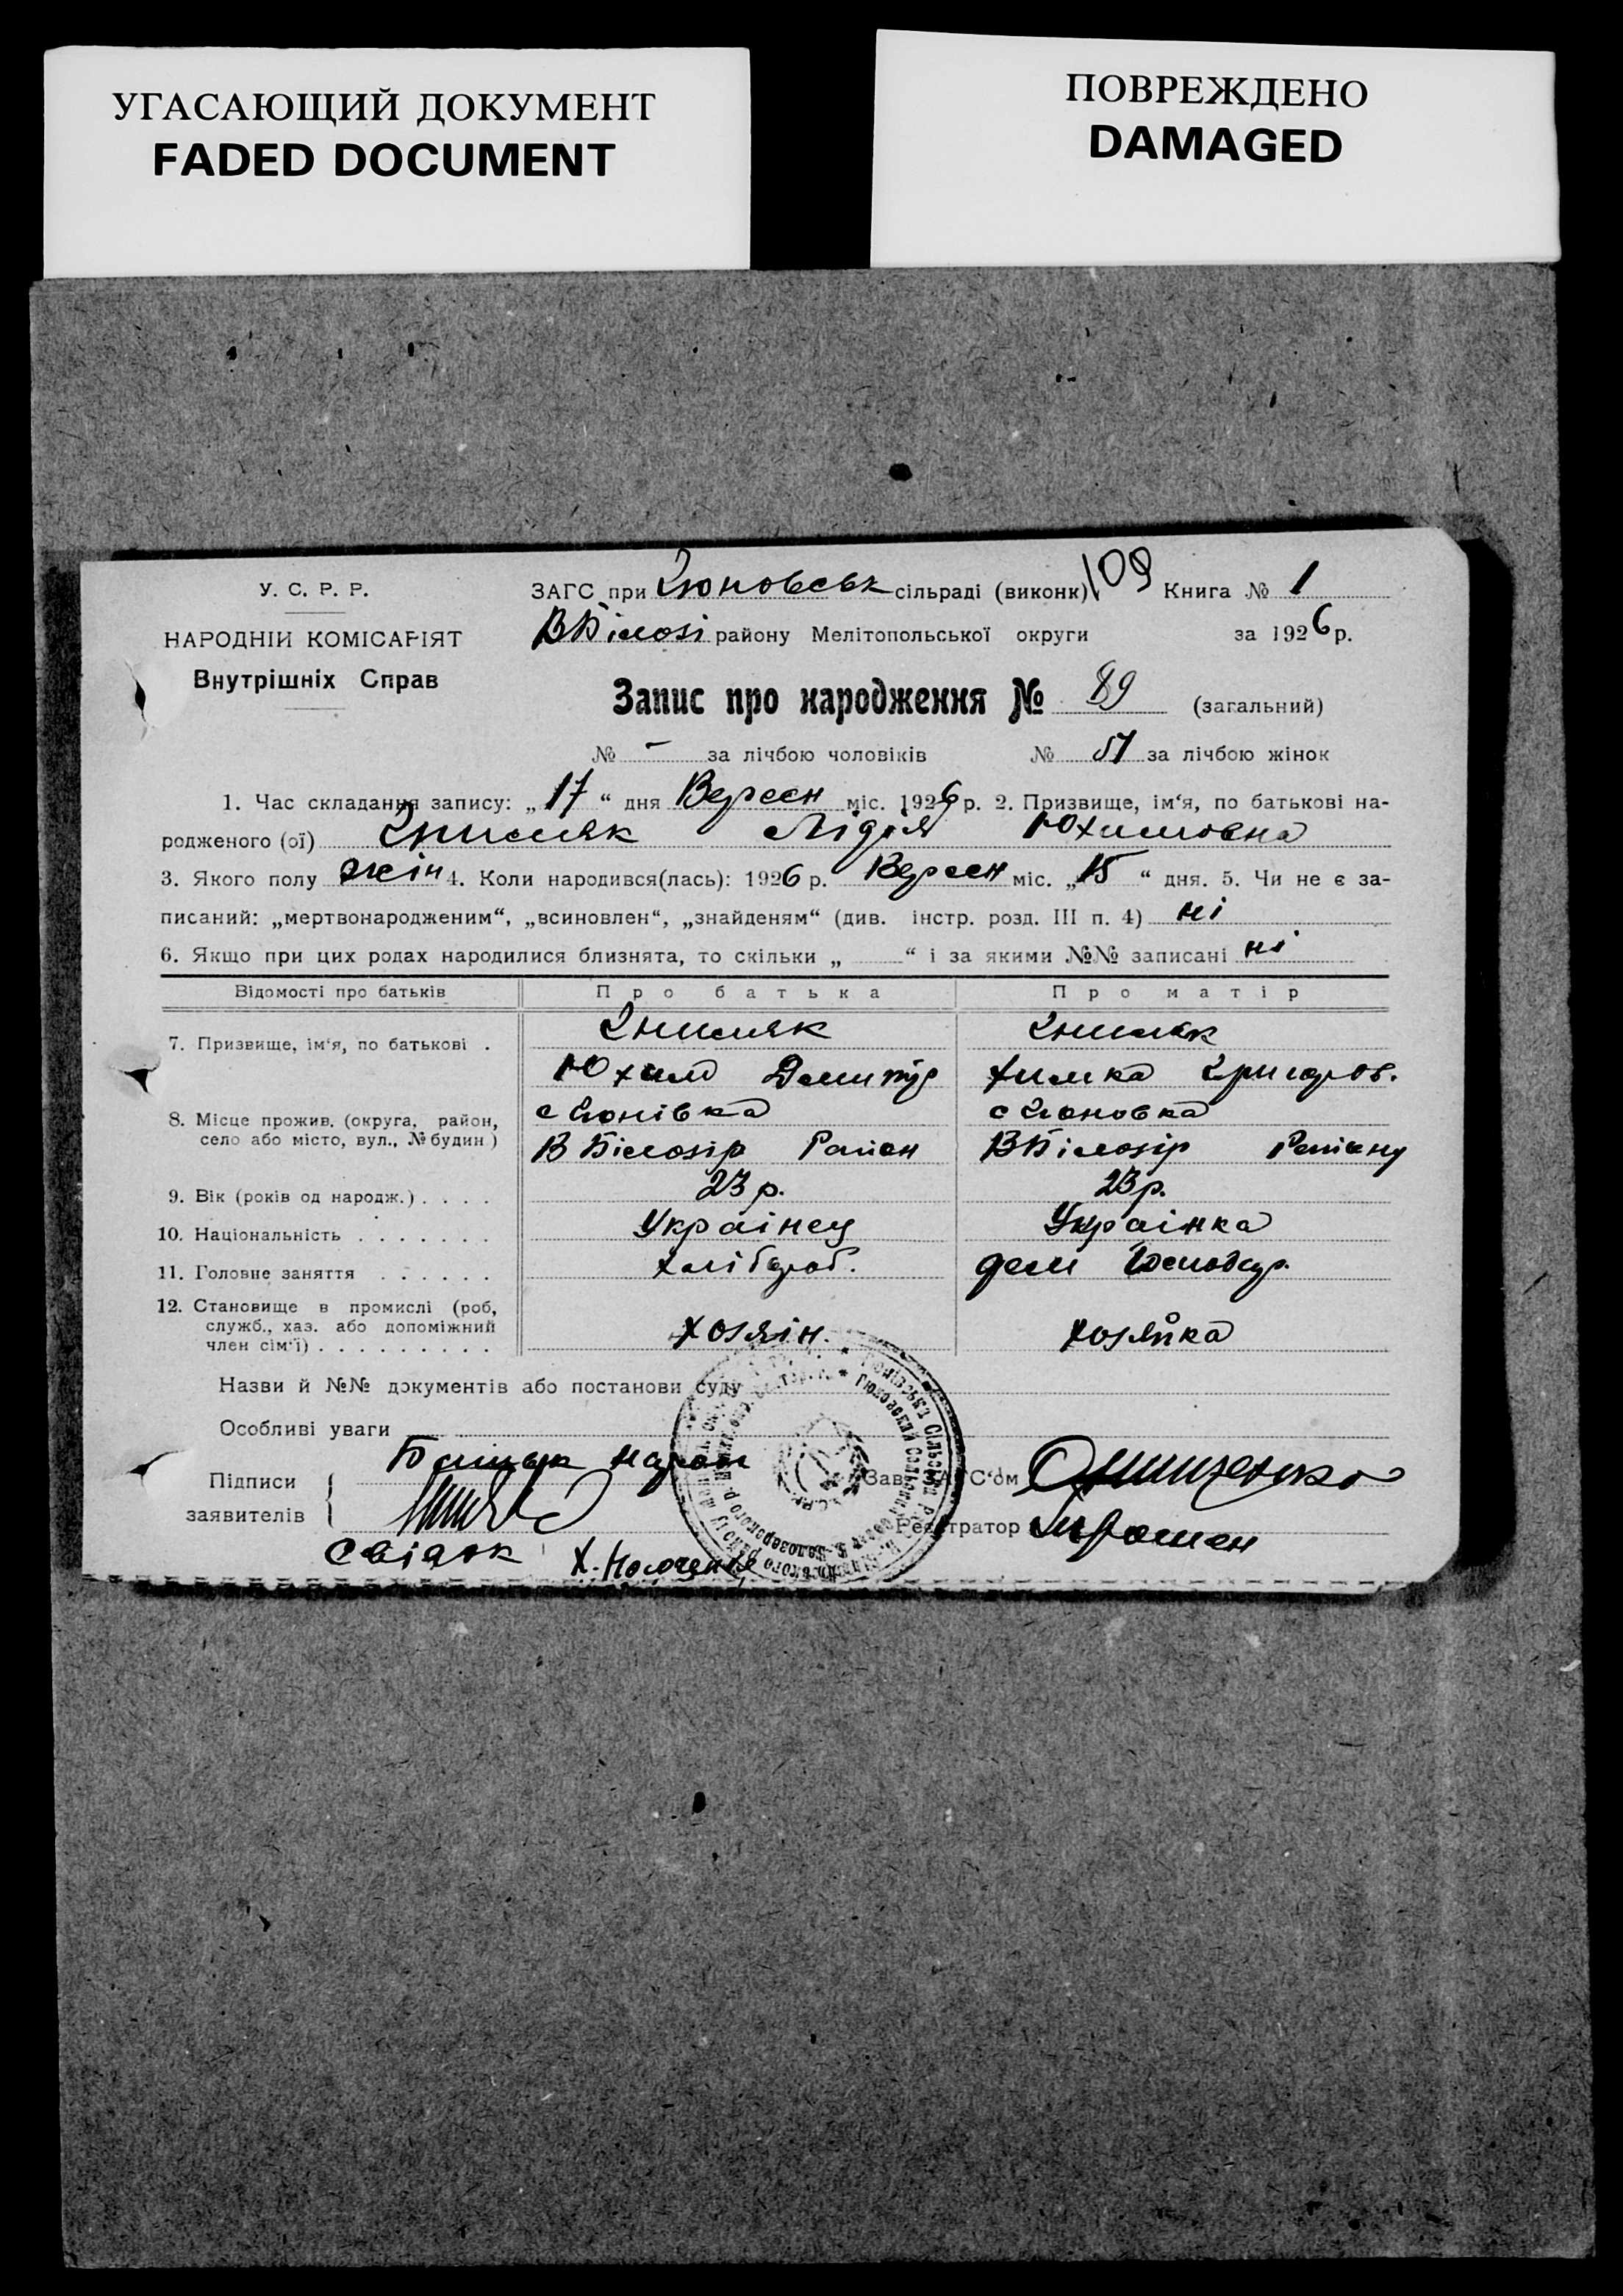 УГАСАЮЩИЙ ДОКУМЕНТ
FADED DOCUMENT
ПОВРЕЖДЕНО
DAMAGED
У. С. Р. Р.
НАРОДНІЙ КОМІСАРІЯТ
Внутрішніх Справ
ЗАГС при Гюновськ сільраді (виконк) 109 Книга № 1
ВБілозі району Мелітопольської округи за 1926 р.
Запис про народження № 89 (загальний)
№ - за лічбою чоловіків № 51 за лічбою жінок
1. Час складання запису: „ 17 “ дня Вересн міс. 1926 р. 2. Призвище, ім‘я, по батькові на-
родженого (ої) Гниляк Лідія Юхимовна
3. Якого полу жін 4. Коли народився(лась): 1926 р. Вересн міс. „ 15 “ дня. 5. Чи не є за-
писаний: „мертвонародженим“, „всиновлен“, „знайденям“ (див. інстр. розд. III п. 4) ні
6. Якщо при цих родах народилися близнята, то скільки „ “ і за якими №№ записані ні
Відомості про батьків Про батька Про матір
7. Призвище, ім‘я, по батькові . Гниляк Гниляк
Юхим Дмитр Химка Григоров.
8. Місце прожив. (округа, район, село або місто, вул., № будин ) с Гюнівка с Гюновка
В Білозір Район ВБілозір Району
9. Вік (років од народж.) . . . . 23 р. 23 р.
10. Національність . . . . . . . Українец Українка
11. Головне заняття . . . . . . Хлібороб. дом Господар.
12. Становище в промислі (роб, служб., хаз. або допоміжний член сім‘ї) . . . . . . . . . Хозяін. Хозяйка
Назви й №№ документів або постанови суду
Особливі уваги
Підписи заявителів
Завг ЗАГС‘ом Онищенко
Регістратор
Свідок Х.